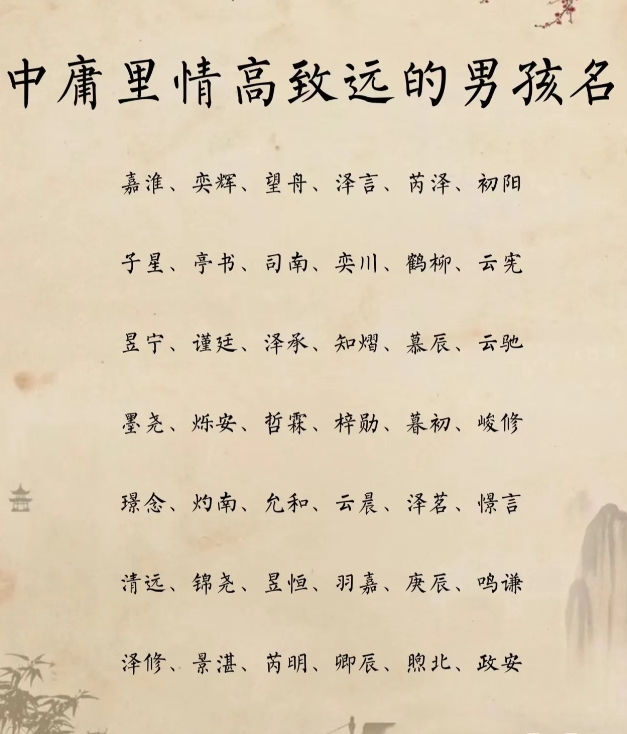 中庸里情高致远的男孩名
嘉淮、奕辉、望舟、泽言、芮泽、初阳
子星、亭书、司南、奕川、鹤柳、云宪
昱宁、谨廷、泽承、知熠、慕辰、云驰
墨尧、烁安、哲霖、梓勋、暮初、峻修
璟念、灼南、允和、云晨、泽茗、憬言
清远、锦尧、昱恒、羽嘉、庚辰、鸣谦
泽修、景湛、芮明、卿辰、煦北、政安